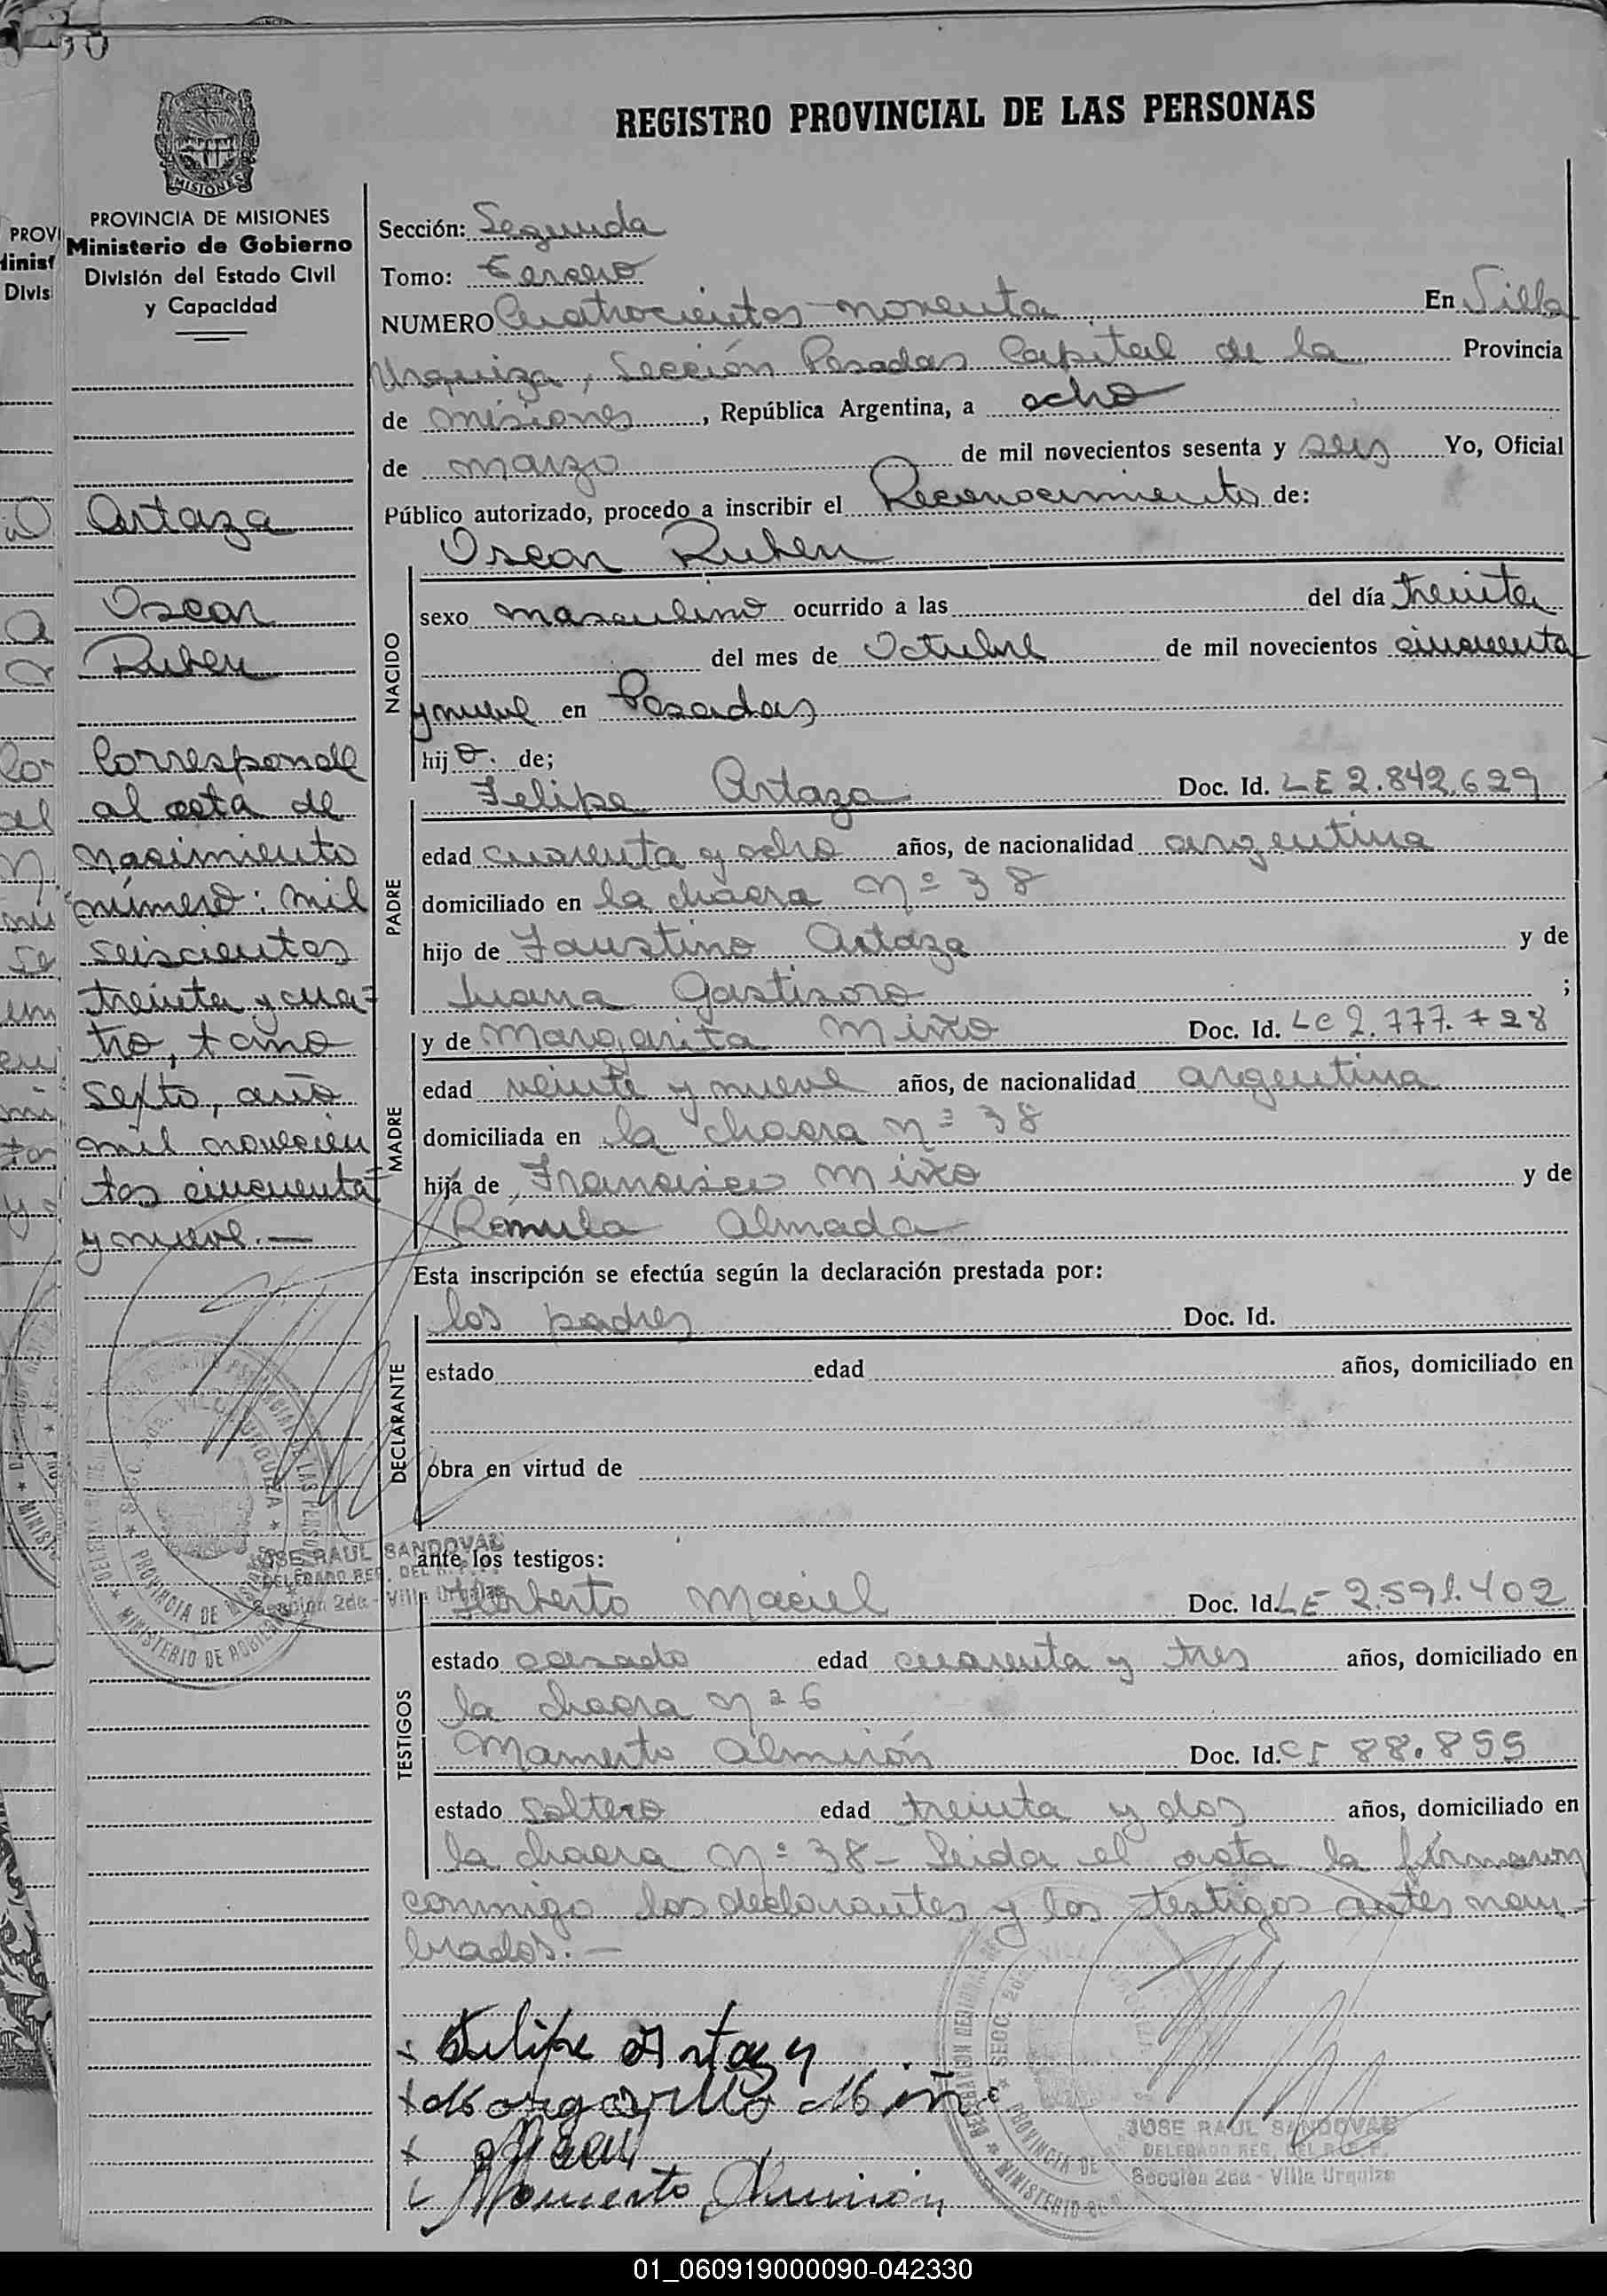 REGISTRO PROVINCIAL DE LAS PERSONAS
MISIONES
PROVINCIA DE MISIONES
Ministerio de Gobierno
División del Estado Civil
y Capacidad
Artaza
Oscar
Ruben
Corresponde
al acta de
nacimiento
número: mil
seiscientos
treinta y cua-
tro, tomo
sexto, año
mil novecien
tos cincuenta
y nueve.—
Sección: Segunda
Tomo: Tercero
NUMERO Cuatrocientos noventa En Villa
Urquiza, Sección Posadas Capital de la Provincia
de Misiones, República Argentina, a ocho
de marzo de mil novecientos sesenta y seis Yo, Oficial
Público autorizado, procedo a inscribir el Reconocimiento de:
Oscar Ruben
NACIDO
sexo masculino ocurrido a las del día treinta
del mes de Octubre de mil novecientos cincuenta
y nueve en Posadas
hijo. de;
PADRE
Felipe Artaza Doc. Id. LE 2.842.629
edad cuarenta y ocho años, de nacionalidad argentina
domiciliado en la chacra Nº 38
hijo de Faustino Artaza y de
Juana Gastisoro ;
MADRE
y de Margarita Miño Doc. Id. LC 2.777.728
edad veinte y nueve años, de nacionalidad argentina
domiciliada en la chacra nº 38
hija de Francisco Miño y de
Rómula Almada
Esta inscripción se efectúa según la declaración prestada por:
DECLARANTE
los padres Doc. Id.
estado edad años, domiciliado en
obra en virtud de
JOSE RAUL SANDOVAL
DELEGADO REG. DEL R.P.P.
Sección 2da - Villa Urquiza
ante los testigos:
TESTIGOS
Norberto Maciel Doc. Id. LE 2.591.402
estado casado edad cuarenta y tres años, domiciliado en
la chacra nº 6
Mamerto Almirón Doc. Id. CI 88.855
estado soltero edad treinta y dos años, domiciliado en
la chacra Nº 38 - Leida el acta la firmaron
conmigo los declarantes y los testigos antes nom-
brados.—
Felipe Artaza
Margarita Miño
Mamerto Almirón
JOSE RAUL SANDOVAL
DELEGADO REG. DEL R.P.P.
Sección 2da - Villa Urquiza
01_060919000090-042330